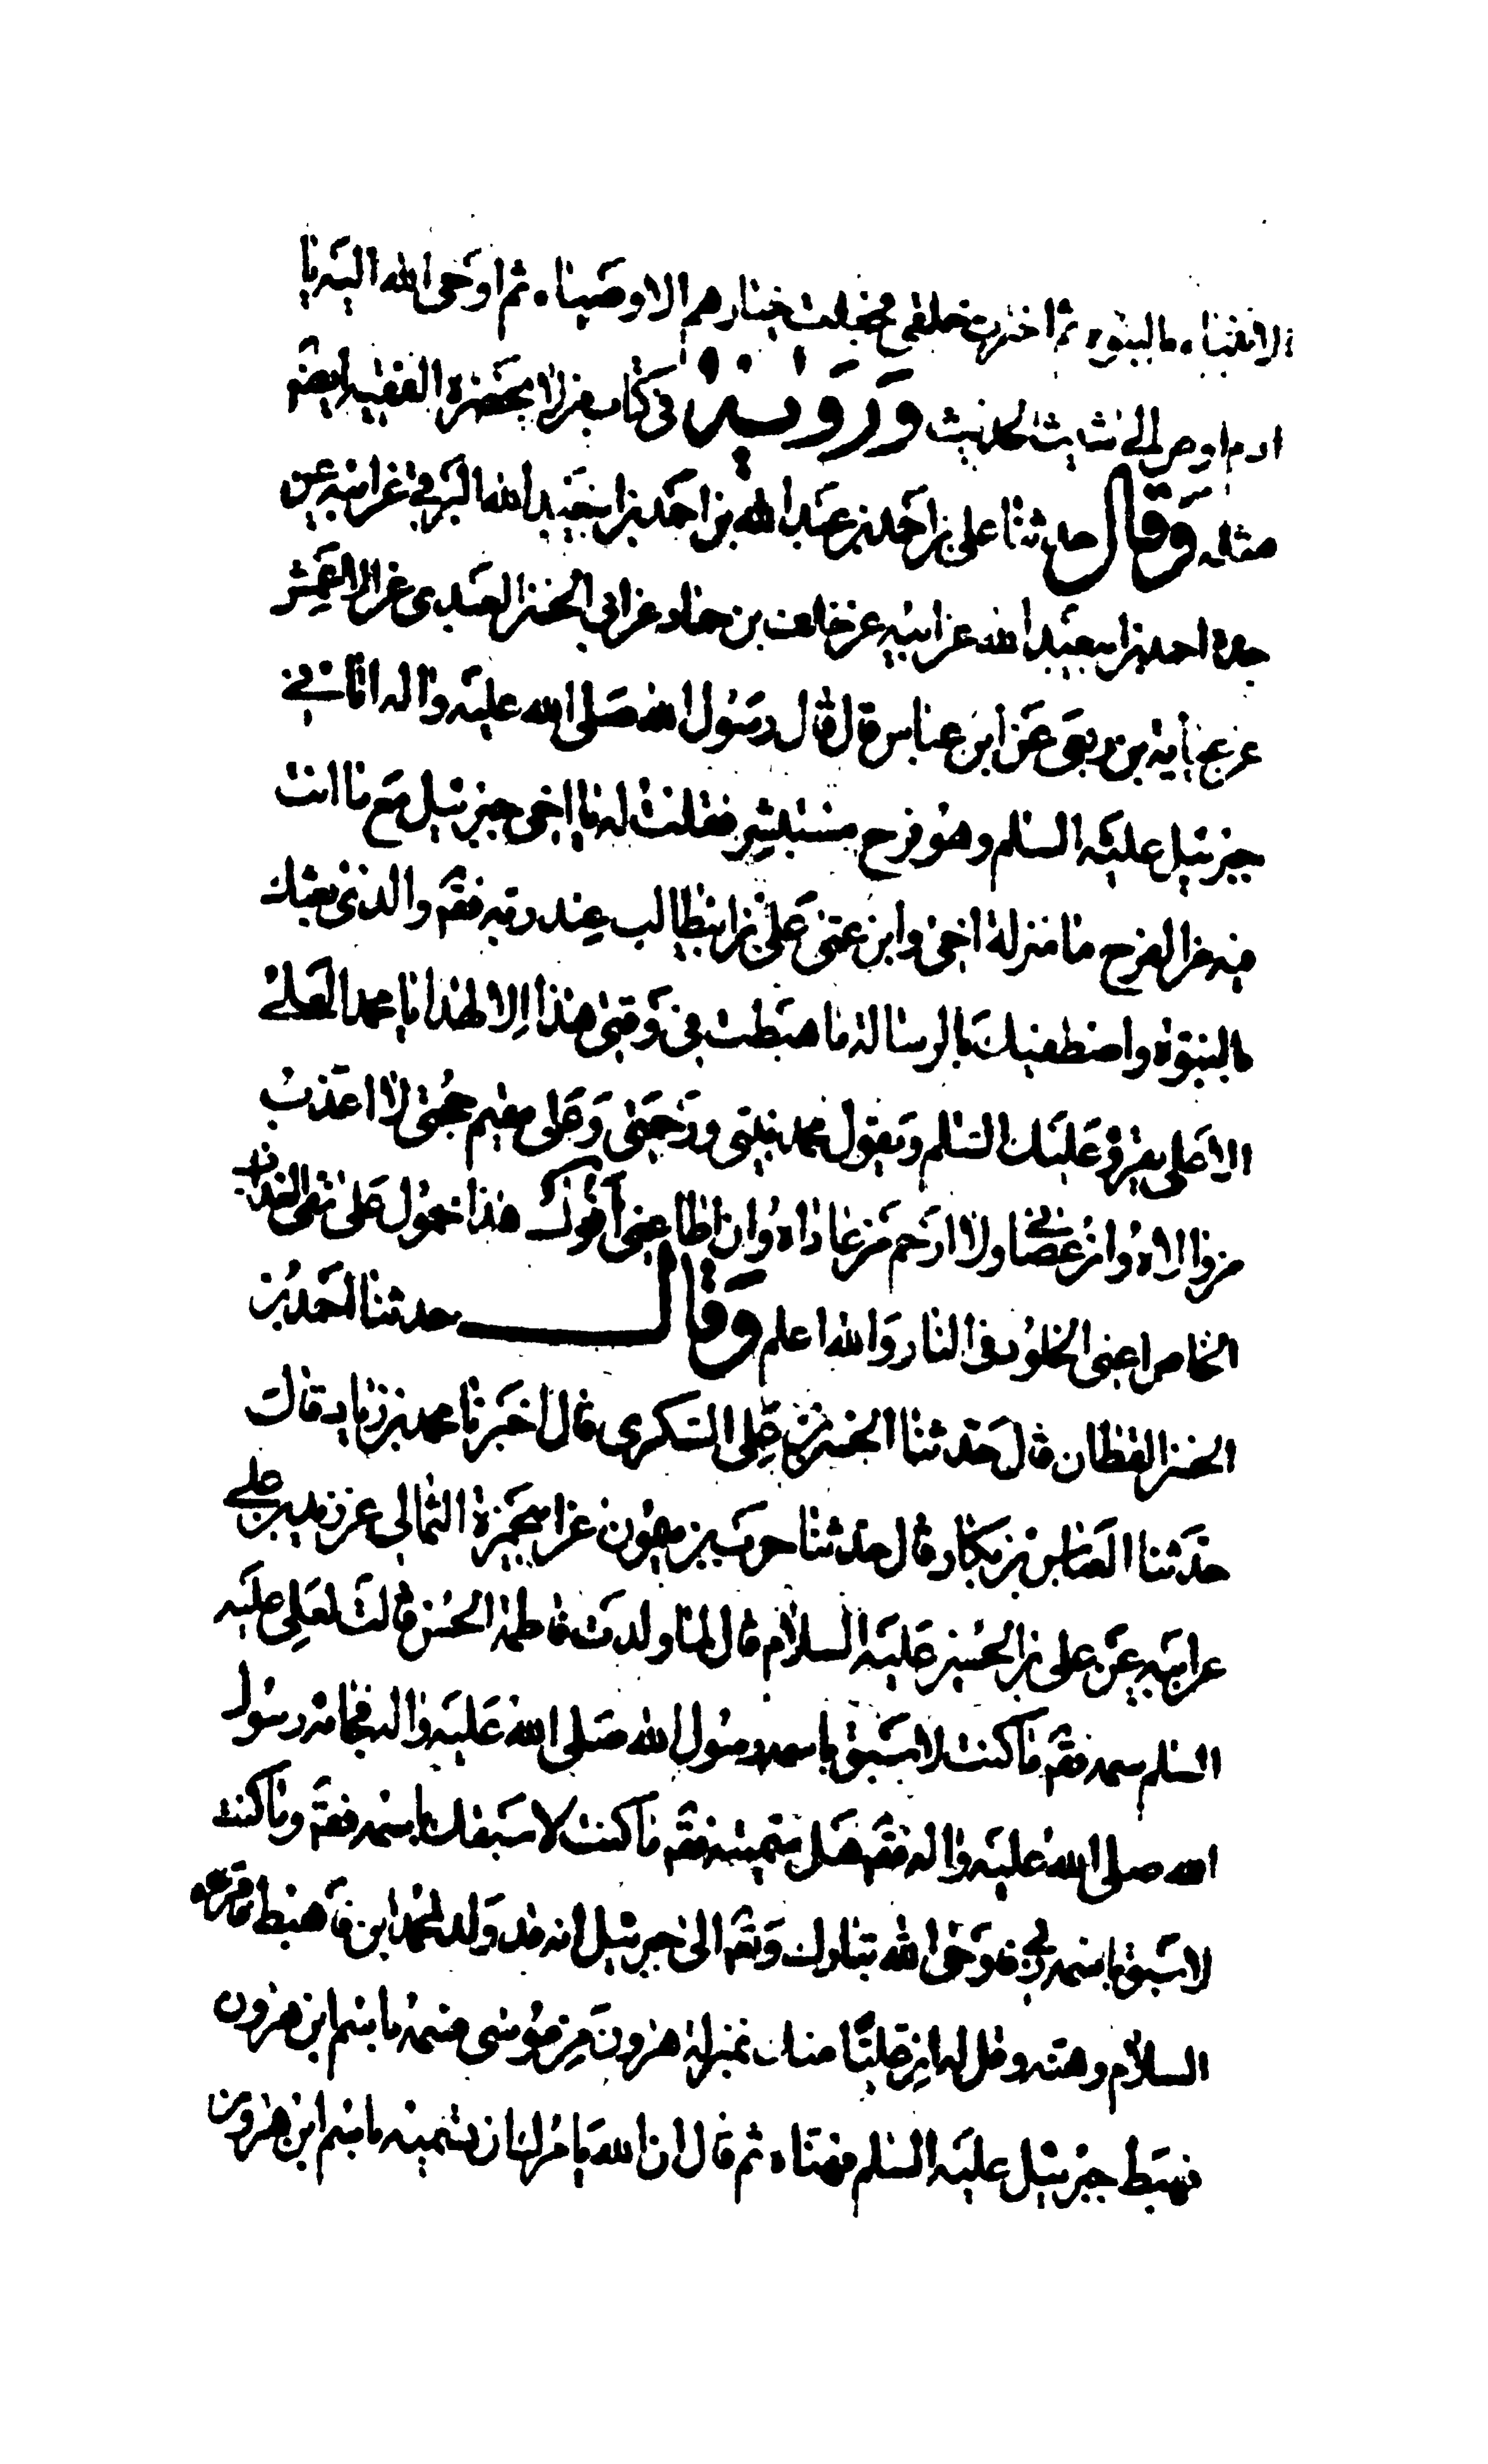 الانبياء بالنبوة، ثم اخترت خلقي فجعلت خيارهم الاوصياء، ثم اوحى الله اليه يا
ادم اوص الى شيث الحديث وروينه في كتاب من لا يحضره الفقيه ايضا
مثله وقال حدثنا علي بن احمد بن عبد الله بن احمد بن ابي عبد الله البرقي عن ابيه عن
جده احمد بن ابي عبد الله عن ابيه عن خلف بن حماد عن ابي الحسن العبدي عن الاعمش
عن عباية بن ربعي عن ابن عباس قال قال رسول الله صلى الله عليه واله اتاني
جبرئيل عليه السلم وهو فرح مستبشر فقلت له يا اخي جبرئيل مع ما انت
فيه من الفرح ما منزلة اخي وابن عمي علي بن ابيطالب عند ربه فقه والذي بعثك
بالنبوة واصطفيك بالرسالة ما هبطت في وقتي هذا الا لهذا يا محمد العلي
الاعلى يقرؤ عليك السلم ويقول محمد نبيي ورحمتي وعلي مقيم حجتي لا اعذب
من والاه وان عصاني ولا ارحم من عاداه وان اطاعني اقول هذا محمول على نفي العذاب
الخاص اعني الخلود في النار والله اعلم وقال حدثنا احمد بن
الحسن القطان قال حدثنا الحسن بن علي السكري قال اخبرنا محمد بن زكريا قال
حدثنا العباس بن بكار قال حدثنا حرب بن ميمون عن ابي حمزة الثمالي عن زيد بن علي
عن ابيه عن علي بن الحسين عليه السلام قال لما ولدت فاطمة الحسن قالت لعلي عليه
السلم سمه فقه ما كنت لاسبق باسمه رسول الله صلى الله عليه واله فجائه رسول
الله صلى الله عليه واله فقه هل سميته فقه ما كنت لاسبقك باسمه فقه وما كنت
لاسبق باسمه ربي فاوحى الله تبارك وتعه الى جبرئيل انه قد ولد لمحمد ابن فاهبط فاقرئه
السلام وهنه وقل له ان عليا منك بمنزلة هرون من موسى فسمه باسم ابن هرون
فهبط جبرئيل عليه السلم فهناه، ثم قال ان الله يامرك ان تسميه باسم ابن هرون